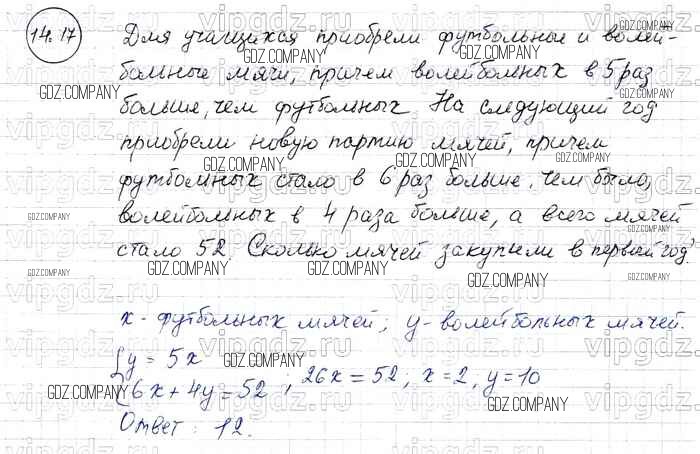 14.17 Для учащихся приобрели футбольные и волей-
больные мячи, причем волейбольных в 5 раз
больше, чем футбольных. На следующий год
приобрели новую партию мячей, причем
футбольных стало в 6 раз больше, чем было,
волейбольных в 4 раза больше, а всего мячей
стало 52. Сколько мячей закупили в первый год?
x - футбольных мячей; y - волейбольных мячей.
{y = 5x
6x + 4y = 52 ; 26x = 52; x = 2, y = 10
Ответ: 12.